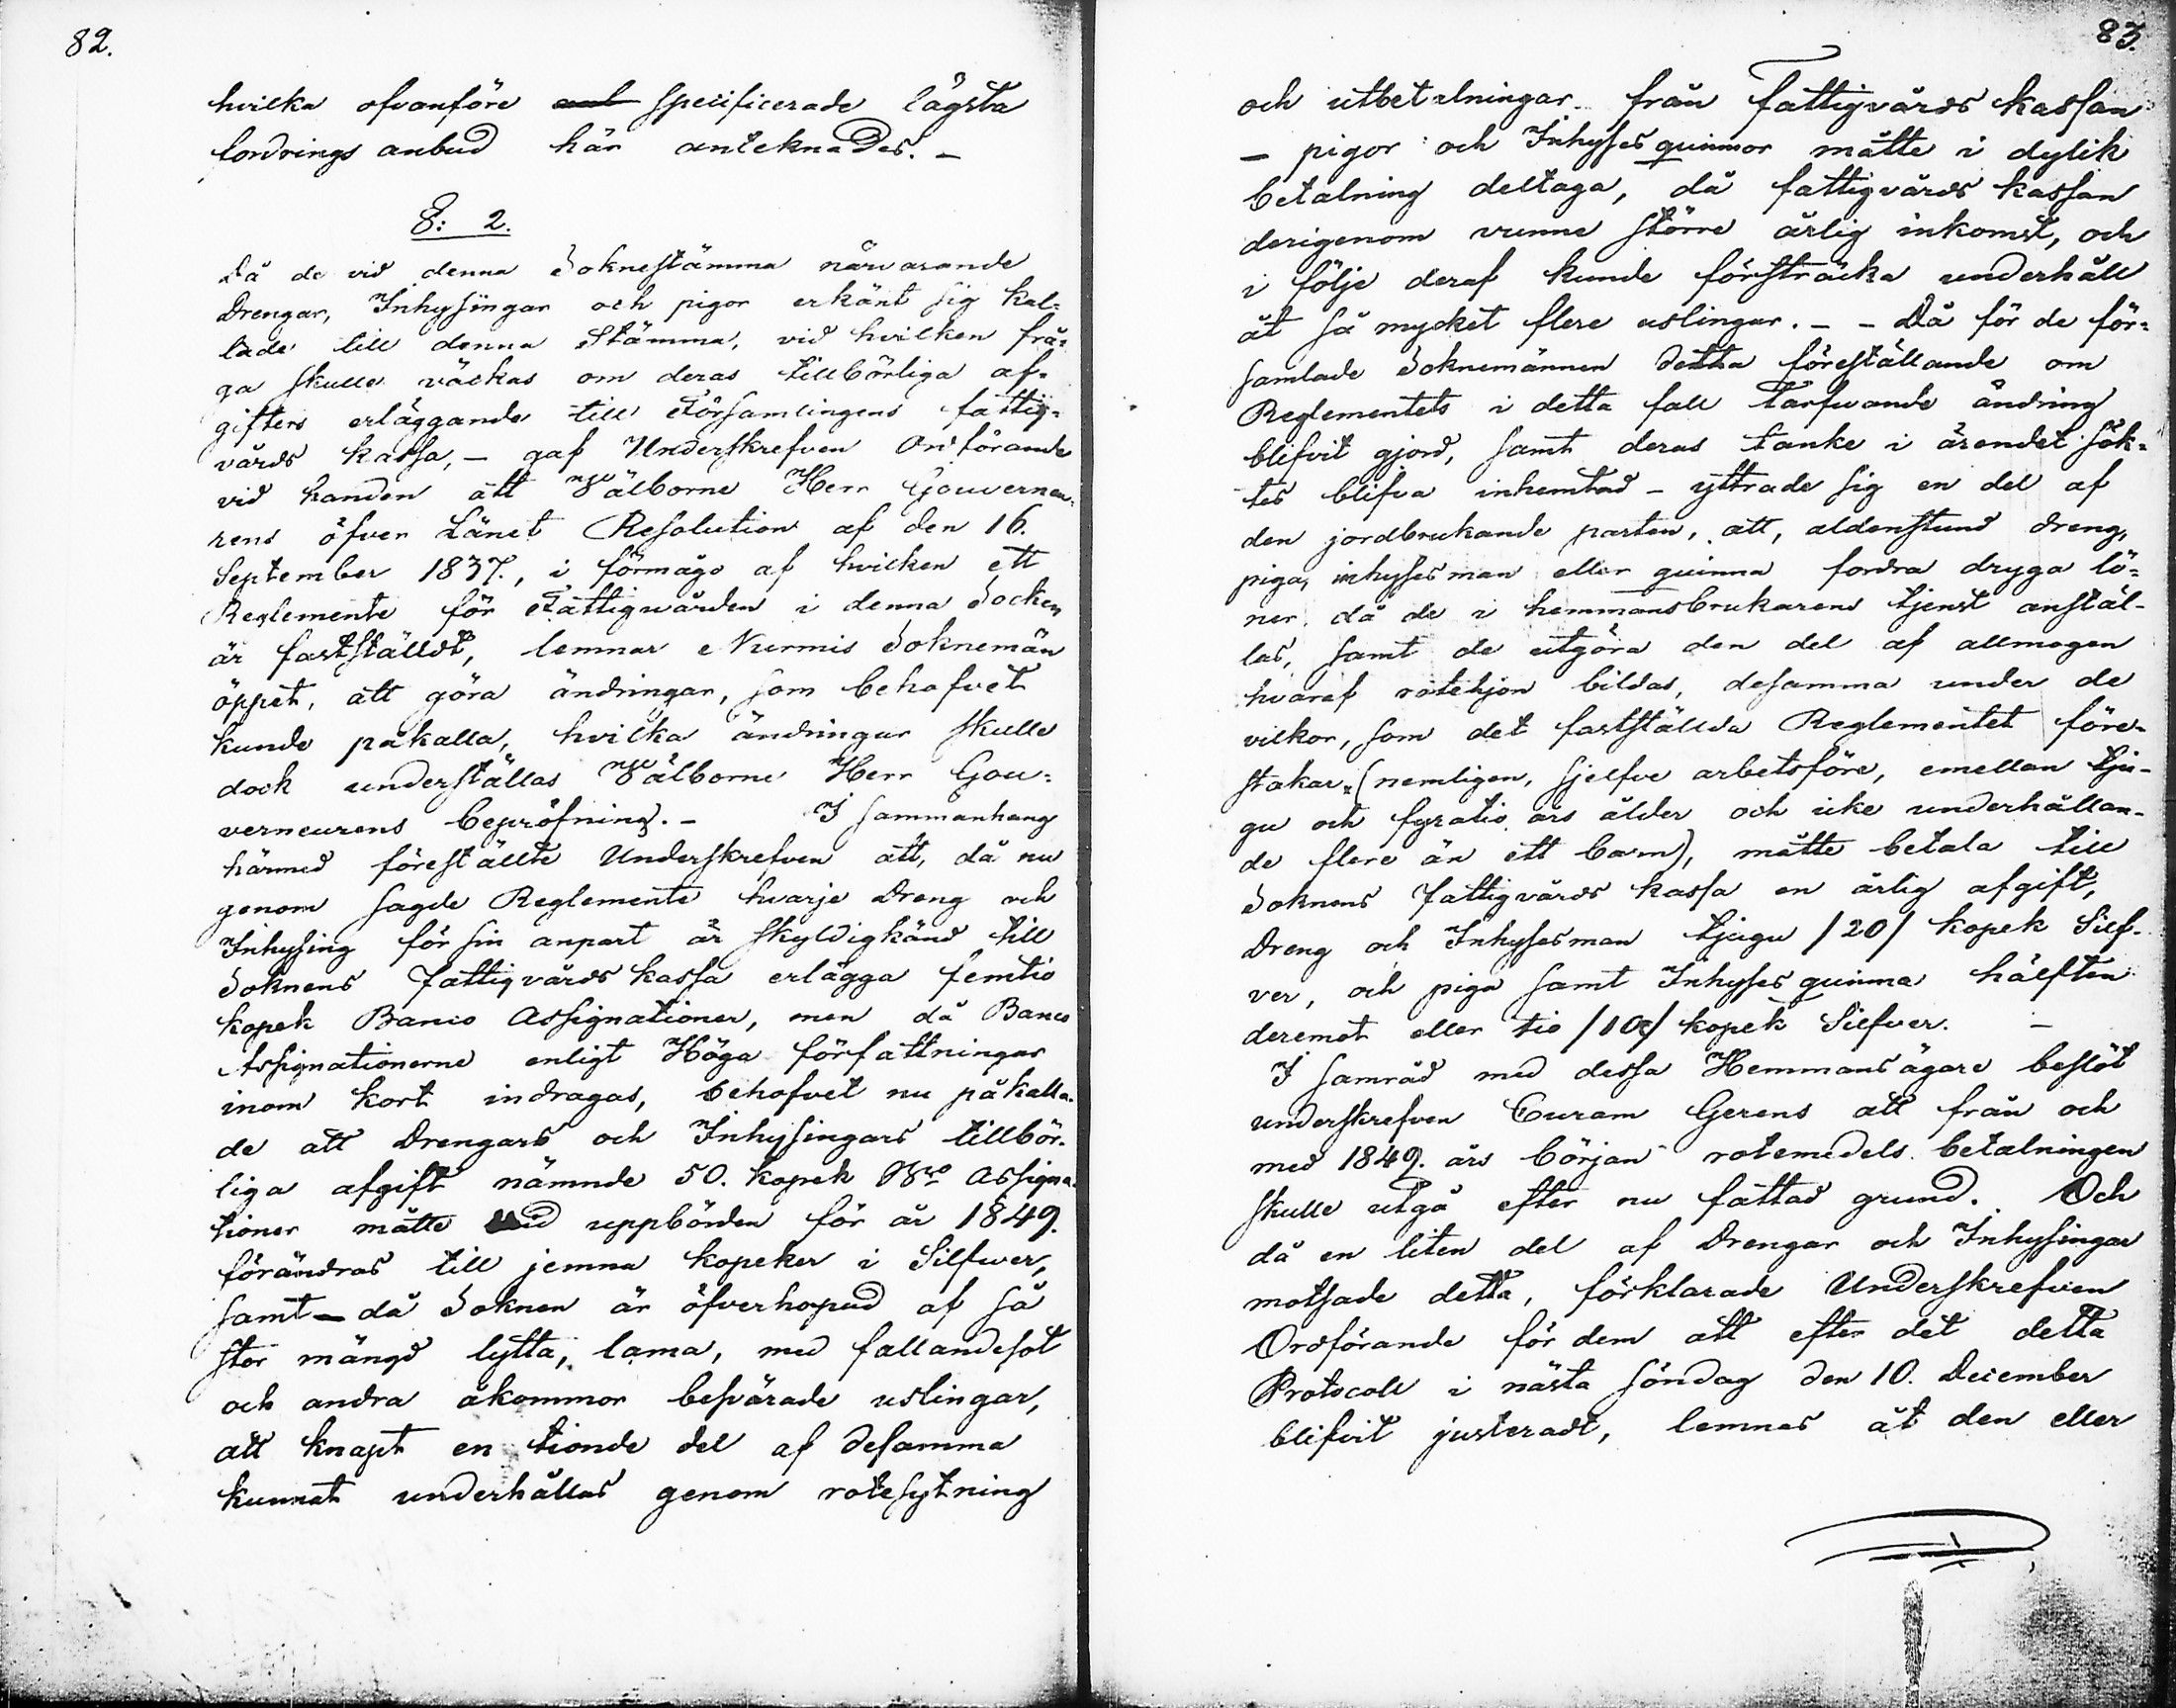 82.
hvilka ofvanföre specificerade lägsta
fordrings anbud här anteknades. –
§: 2.
Då de vid denna Soknestämma närvarande
Drengar, Inhysingar och pigor erkänt sig kal=
lade till denna Stämma, vid hvilken frå=
ga skulle väckas om deras tillbörliga af=
gifters erläggande till Församlingens fattig=
vårds kassa, – gaf Underskrefven Ordförande
vid handen att Välborne Herr Gouverneu=
rens öfver Länet Resolution af den 16.
September 1837., i förmågo af hvilken ett
Reglemente för Fattigwården i denna Socken
är fastställdt, lemnar Nurmis Soknemän
öppet, att göra ändringar, som behofvet
kunde påkalla, hvilka ändringar skulle
dock underställas Välborne Herr Gou=
verneurens bepröfning. – I sammanhang
härmed föreställte Underskrefven att, då nu
genom sagde Reglemente hvarje Dreng och
Inhysing för sin anpart är skyldigkänd till
Soknens fattigvårds kassa erlägga femtio
kopek Banco Assignationer, men då Banco
Assignationerne enligt Höga författningar
inom kort indragas, behofvet nu påkalla=
de att Drengars och Inhysingars tillbör=
liga afgift nämnde 50. kopek Bco Assigna=
tioner måtte vid uppbörden för år 1849.
förändras till jemna kopeker i Silfwer,
samt – då Soknen är öfverhopad af så
stor mängd lytta, lama, med fallandesot
och andra åkommor besvärade uslingar,
att knapt en tionde del af desamma
kunnat underhållas genom rotesytning
83.
och utbetalningar från Fattigvårds kassan
– pigor och Inhyses quinnor måtte i dylik
betalning deltaga, då fattigvårds kassan
derigenom vunne större årlig inkomst, och
i följe deraf kunde försträcka underhåll
åt så mycket flere uslingar. – – Då för de för=
samlade Soknemännen detta föreställande om
Reglementets i detta fall tarfwande ändring
blifvit gjord, samt deras tanke i ärendet sök=
tes blifva inhemtad – yttrade sig en del af
den jordbrukande parten, att, aldenstund dreng,
piga, inhysesman eller quinna fordra dryga lö=
ner, då de i hemmansbrukarens tjenst anstäl-
las, samt de utgöra den del af allmogen
hvaraf rotehjon bildas, desamma under de
vilkor, som det fastställda Reglementet före-
stakar, (nemligen, sjelfve arbetsföre, emellan tju-
gu och fyratio års ålder och icke underhållan-
de flere än ett barn), måtte betala till
Soknens Fattigvårds kassa en årlig afgift,
Dreng och Inhysesman tjugu /20/ kopek Silf-
ver, och piga samt Inhyses quinna hälften
deremot eller tio /10/ kopek Silfver. –
I samråd med dessa Hemmansägare beslöt
underskrefven Curam Gerens att från och
med 1849. års början rotemedels betalningen
skulle utgå efter nu fattad grund. Och
då en liten del af Drengar och Inhysingar
motsade detta, förklarade Underskrefven
Ordförande för dem att efter det detta
Protocoll i nästa söndag den 10. December
blifvit justeradt, lemnas åt den eller